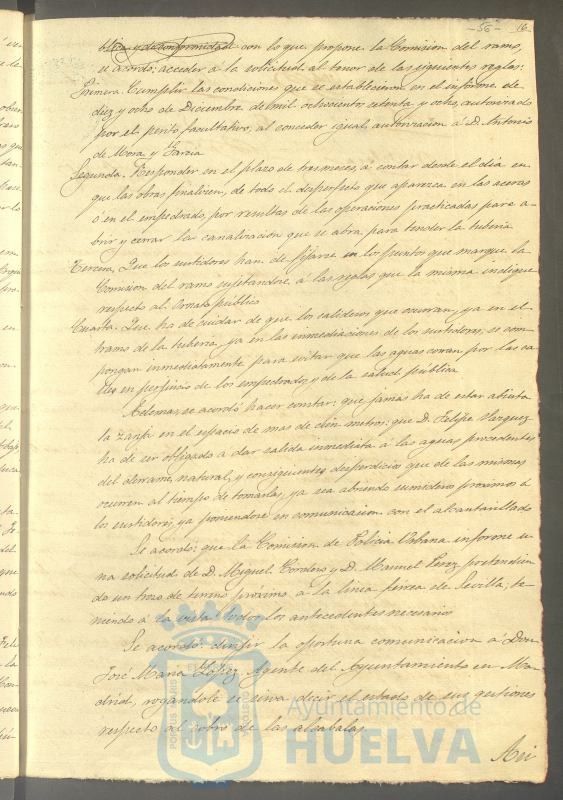 - 56 - 16
blica y de conformidad con lo que propone la Comision del ramo,
se acordó: acceder á la solicitud al tenor de las siguientes reglas:
Primera. Cumplir las condiciones que se establecieron en el informe de
diez y ocho de Diciembre de mil ochocientos setenta y ocho, autorizado
por el perito facultativo, al conceder igual autorizacion á D. Antonio
de Mora y Garcia
Segunda. Responder en el plazo de tres meses, á contar desde el dia en
que las obras finalicen, de todo el desperfecto que aparezca en las aceras
ó en el empedrado, por resultas de las operaciones practicadas para a-
brir y cerrar la canalizacion que se abra para tender la tuberia
Tercera. Que los surtidores han de fijarse en los puntos que marque la
Comision del ramo sujetandose á las reglas que la misma indique
respecto al Ornato público
Cuarta. Que ha de cuidar de que los salideros que ocurran, ya en el
tramo de la tuberia, ya en las inmediaciones de los surtidores, se com-
pongan inmediatamente para evitar que las aguas corran por las ca-
lles en perjuicio de los empedrados y de la salud pública
Ademas, se acordó hacer constar: que jamás ha de estar abierta
la zanja en el espacio de mas de cien metros: que D. Felipe Vazquez
ha de ser obligado á dar salida inmediata á las aguas procedentes
del derrame natural, y consiguientes desperdicios que de las mismas
ocurren al tiempo de tomarlas, ya sea abriendo sumideros proximos á
los surtidores, ya poniendose en comunicacion con el alcantarillado
Se acordó: que la Comision de Policia Urbana informe u-
na solicitud de D. Miguel Cordero y D. Manuel Perez pretendien-
do un trozo de terreno proximo á la linea férrea de Sevilla; te-
niendo á la vista todos los antecedentes necesarios
Se acordó: dirijir la oportuna comunicacion á Don
José Maria Lopez, Agente del Ayuntamiento en Ma-
drid, rogandole se sirva decir el estado de sus gestiones
respecto al cobro de las alcabalas.
Asi
Ayuntamiento de
HUELVA